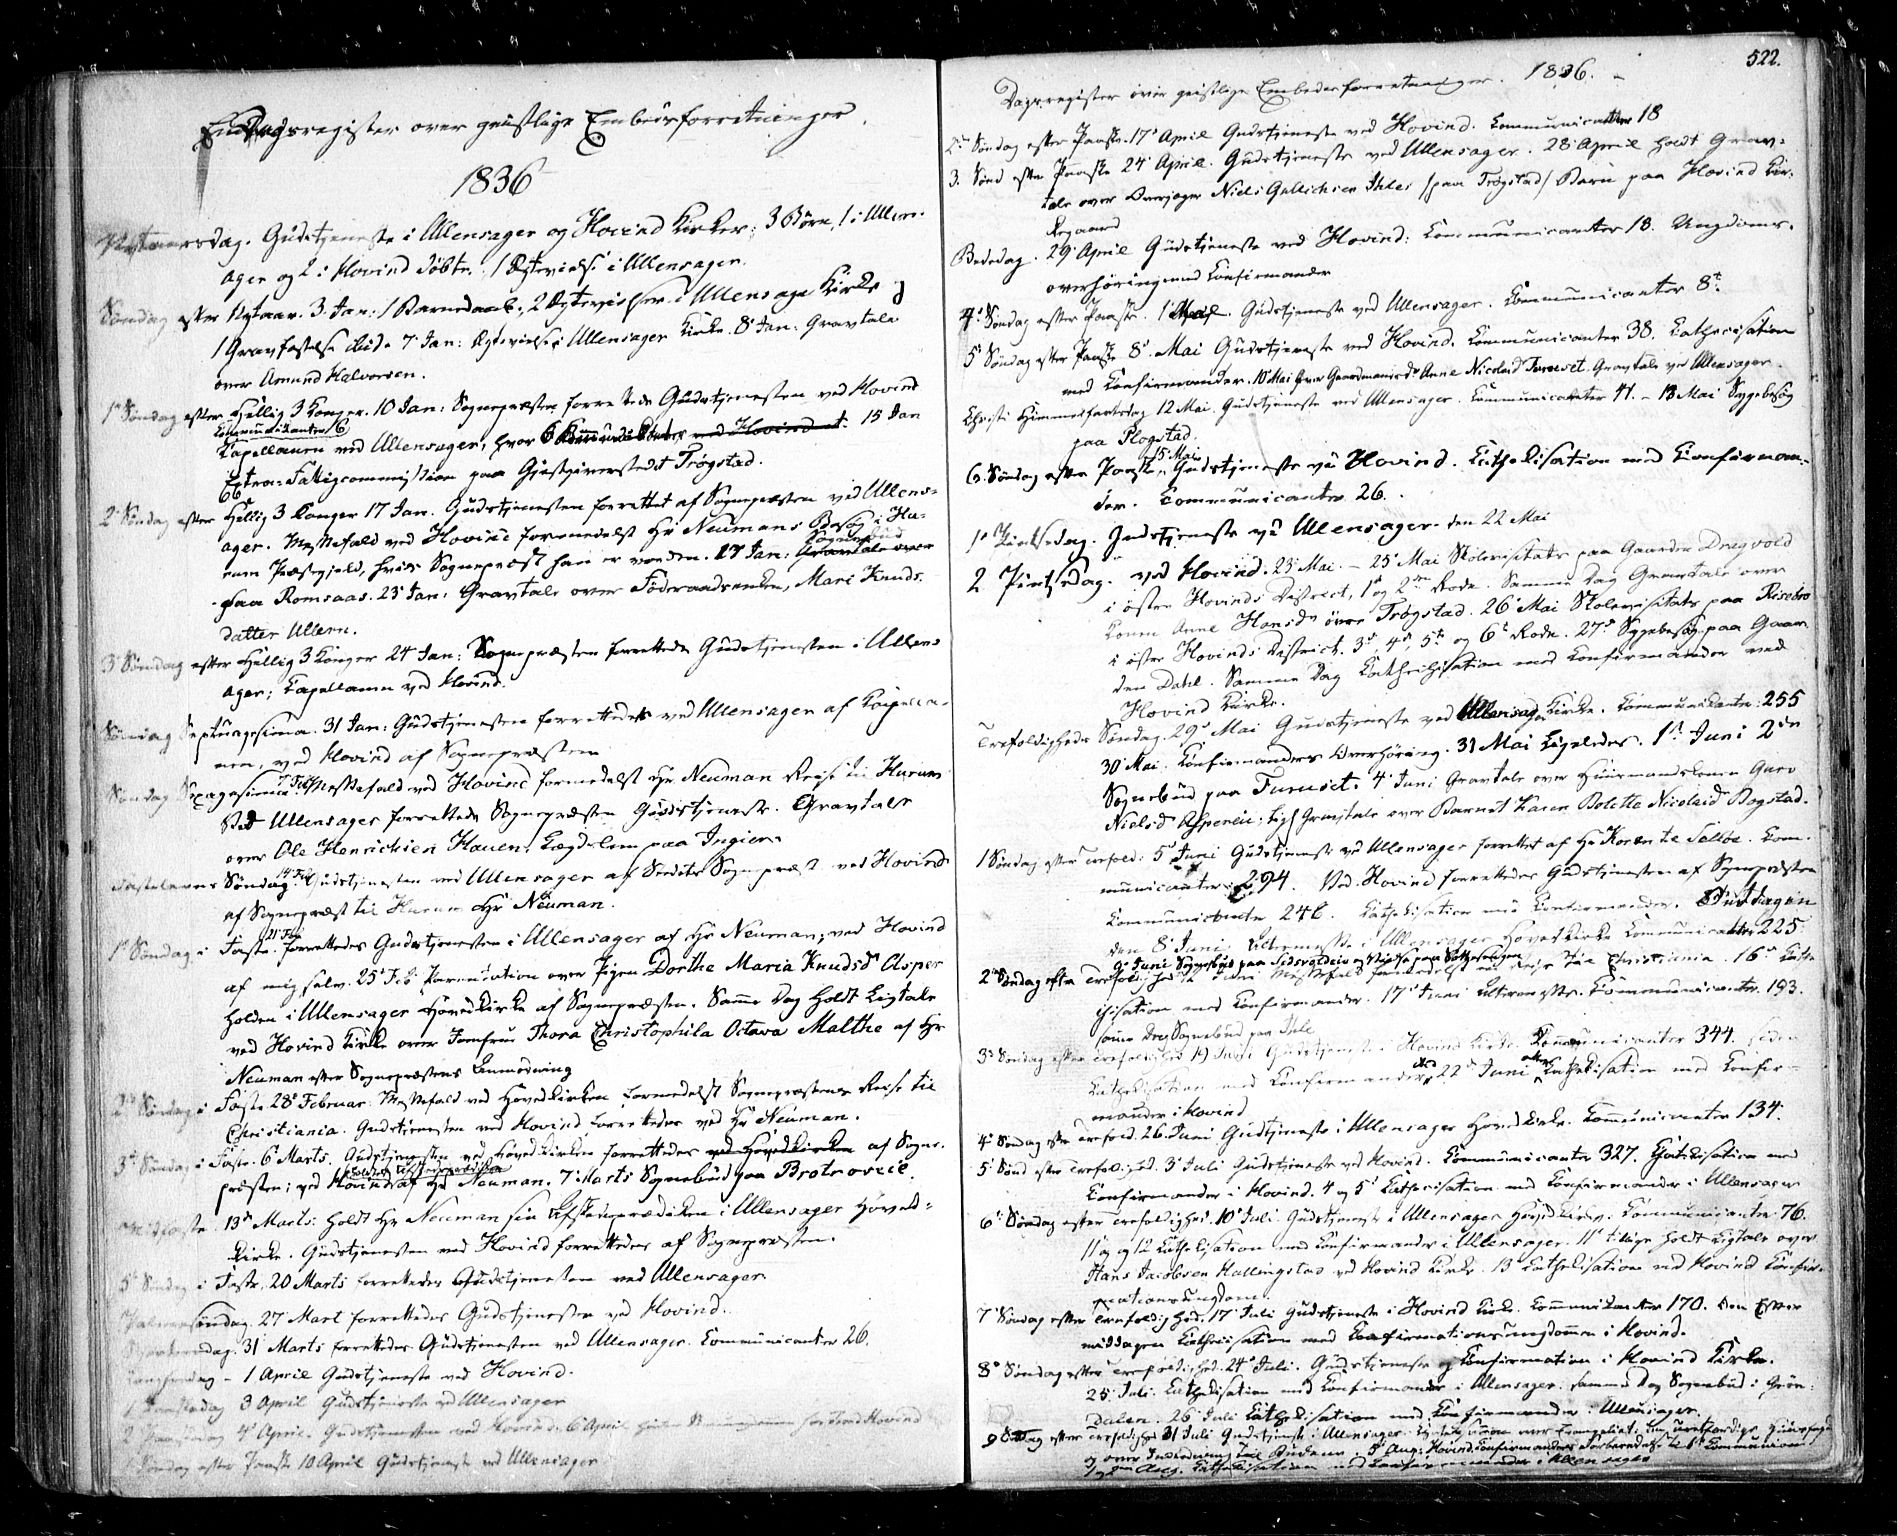 Dagsregister over geistlige Embedsforretninger.
1836
Nytaarsdag. Gudstjeneste i Ullensager og Hovind Kirker; 3 Børn, 1 i Ullens-
ager og 2 i Hovind døbte. 1 Ægtevielse i Ullensager.
Søndag efter Nytaar. 3. Jan: 1 Barnedaab, 2 Ægtevielser i Ullensager Kirke og
1 Gravfæstelse ibid. 7 Jan: Ægtevielse i Ullensager Kirke. 8 Jan: Gravtale
over Amund Halvorsen.
1ste Søndag efter Hellig 3 Konger. 10 Jan: Sognepræsten forrettede Gudstjenesten ved Hovind
Communicanter 16
Kapellanen ved Ullensager, hvor 6 ved Hovind 15 Jan
Extra: Fattigcommission paa Gjestgiverstedet Trøgstad.
2 Søndag efter Hellig 3 Konger 17 Jan. Gudstjenesten forrettet af Sognepræsten ved Ullens-
ager. Messefald ved Hovind formedelst Hr Neumans Besøg i Hu-
rum Præstegjeld, hvis Sognepræst han er vorden. 17 Jan: Sognebud
paa Romsaas. 23 Jan: Gravtale over Føderaadsenken, Mari Knuds-
datter Ullern.
3 Søndag efter Hellig 3 Konger 24 Jan: Sognepræsten forrettede Gudstjenesten i Ullens-
ager; Capellanen ved Hovind.
Søndag Septuagesima. 31 Jan: Gudstjenesten forrettedes ved Ullensager af Capella-
nen, ved Hovind af Sognepræsten
Søndag Sexagesima 7 Feb Messefald ved Hovind formedelst Hr Neuman Reise til Hurum
Ved Ullensager forrettede Sognepræsten Gudstjeneste. Gravtale
over Ole Henrichsen Hauen, Lægdslem paa Ingier.
Fastelavns Søndag 14 Feb Gudstjenesten ved Ullensager af Stedets Sognepræst ved Hovind
af Sognepræst til Hurum Hr Neuman.
1ste Søndag i Faste 21 Feb. forrettedes Gudstjenesten i Ullensager af Hr Neuman; ved Hovind
af mig selv. 25 Feb Parentation over Pigen Dorthe Maria Knudsd. Asper
holden i Ullensager Hovedkirke af Sognepræsten. Samme Dag holdt Ligtale
ved Hovind Kirke over Jomfru Thora Christophila Octava Malthe af Hr
Neuman efter Sognepræstens Anmodning
2den Søndag i Faste 28 Februar. Messefald ved Hovedkirken formedelst Sognepræstens Reise til
Christiania. Gudstjenesten ved Hovind forrettedes ved Hr Neuman.
3die Søndag i Faste. 6 Marts. Gudstjenesten ved Hovedkirken forrettedes ved Hovedkirken af Sogne-
præsten; ved Hovind af Hr Neuman. 7 Marts Sognebud paa Brotroveie.
Midfaste. 13de Marts: holdt Hr Neuman sin Afskedsprædiken i Ullensager Hoved-
kirke. Gudstjenesten ved Hovind forrettedes af Sognepræsten.
5 Søndag i Faste 20 Marts forrettedes Gudstjenesten ved Ullensager
Palmesøndag. 27 Mart forrettedes Gudstjenesten ved Hovind.
Skjærtorsdag. 31 Marts forrettedes Gudstjenesten ved Ullensager. Communicanter 26.
Langfredag - 1 April Gudstjeneste ved Hovind.
1 Paaskedag 3 April Gudstjeneste ved Ullensager
2 Paaskedag 4 April. Gudstjenesten ved Hovind. 6 April
1 Søndag efter Paaske 10 April Gudstjeneste ved Ullensager
522.
Dagsregister over geistlige Embedsforretninger. 1836.
2den Søndag efter Paaske 17 April Gudstjeneste ved Hovind. Communicanter 18
3. Sønd efter Paaske 24 April. Gudstjeneste ved Ullensager. 28 April holdt Grav-
tale over Niels Gallichsen Ihles (paa Trøgstad) Barn paa Hovind Kir-
kegaard
Bededag. 29 April Gudstjeneste ved Hovind: Communicanter 18. Ungdoms-
overhøring med Confirmander
4 Søndag efter Paaske. 1 Mai. Gudstjeneste ved Ullensager. Communicanter 8
5 Søndag efter Paaske 8 Mai Gudstjeneste ved Hovind. Communicanter 38. Cathecisation
med Confirmander. 10 Mai over Anne Nicolaid Furuset Gravtale ved Ullensager.
Christi Himmelfartsdag 12 Mai. Gudstjeneste ved Ullensager. Communicanter 41. - 13 Mai Sygebesøg
paa Plogstad.
6. Søndag efter Paaske 15 Mai Gudstjeneste ved Hovind. Cathekisation med Confirman-
der. Communicanter 26.
1 Pintsedag. Gudstjeneste ved Ullensager. den 22 Mai
2 Pintsedag. ved Hovind. 23 Mai. - 25 Mai Skolevisitats paa Gaarden Dragvold
i østre Hovinds District, 1 og 2 Rode. Samme Dag Gravtale over
Konen Anne Hansd. øvre Trøgstad. 26 Mai Skolevisitats paa Risebro
i øster Hovinds District. 3, 4, 5 og 6 Rode. 27 Sygebesøg paa Gaar-
den Dahl. Samme Dag Cathechisation med Confirmander ved
Hovind Kirke.
Trefoldigheds Søndag. 29 Mai Gudstjeneste ved Ullensager Kirke. Communicanter: 255
30 Mai. Confirmanders Overhøring. 31 Mai Ligeledes. 1 Juni 2den
Sognebud paa Furuset. 4 Juni Gravtale over Huusmandskonen Guro
Nielsd. ; Gravtale over Barnet Karen Bolette Nicolaid Bogstad.
1 Søndag efter Trefold: 5 Juni Gudstjeneste ved Ullensager forrettet af Hr . Com-
municanter: 294. Ved Hovind forrettedes Gudstjenesten af Sognepræsten
Communicanter 246. Cathekisation med Confirmander.
den 8 Juni. Altermesse i Ullensager Hovedkirke Communicanter 225.
9 Juni Sognebud paa
2 Søndag efter Trefoldighed 12 Juni Messefald formedelst Reise til Christiania. 16 Cathe-
cisation med Confirmander. 17 Juni Altermesse. Communicanter 193.
samme Dag Sognebud paa Ihle
3 Søndag efter Trefoldighed 19 Juni Gudstjeneste i Hovind Kirke. Communicanter 344.
Cathekisation med Confirmander. 22 Juni Cathekisation med Confir-
mander i Hovind
4 Søndag efter Trefold. 26 Juni Gudstjeneste i Ullensager Hovedkirke. Communicanter 134.
5 Sønd efter Trefoldighed. 3 Juli Gudstjeneste ved Hovind. Communicanter 327. Cathekisation med
Confirmander i Hovind. 4 og 5 Cathecisation med Confirmander i Ullensager
6 Søndag efter Trefoldighed. 10 Juli. Gudstjeneste i Ullensager Hovedkirke. Communicanter: 76.
11 og 12 Cathekisation med Confirmander i Ullensager. 11 tillige holdt Ligtale over
Hans Jacobsen Hallingstad ved Hovind Kirke. 13 Cathekisation ved Hovind Confir-
mationsungdom.
7 Søndag efter Trefoldighed. 17 Juli Gudstjeneste i Hovind Kirke. Communicanter 170. Om Efter-
middagen Cathecisation med Confirmationsungdommen i Hovind.
8 Søndag efter Trefoldighed. 24 Juli. Gudstjeneste og Confirmation i Hovind Kirke.
25 Juli. Cathekisation med Confirmander i Ullensager. samme Dag Sognebud i Grøn-
dalen. 26 Juli Cathekisation med Confirmander i Ullensager.
9 Søndag efter Trefoldighed 31 Juli Gudstjeneste i Ullensager.
Aug: Hovind Confirmanders Forberedelse til 1ste Communion
Aug. Cathekisation med Confirmander i Ullensager